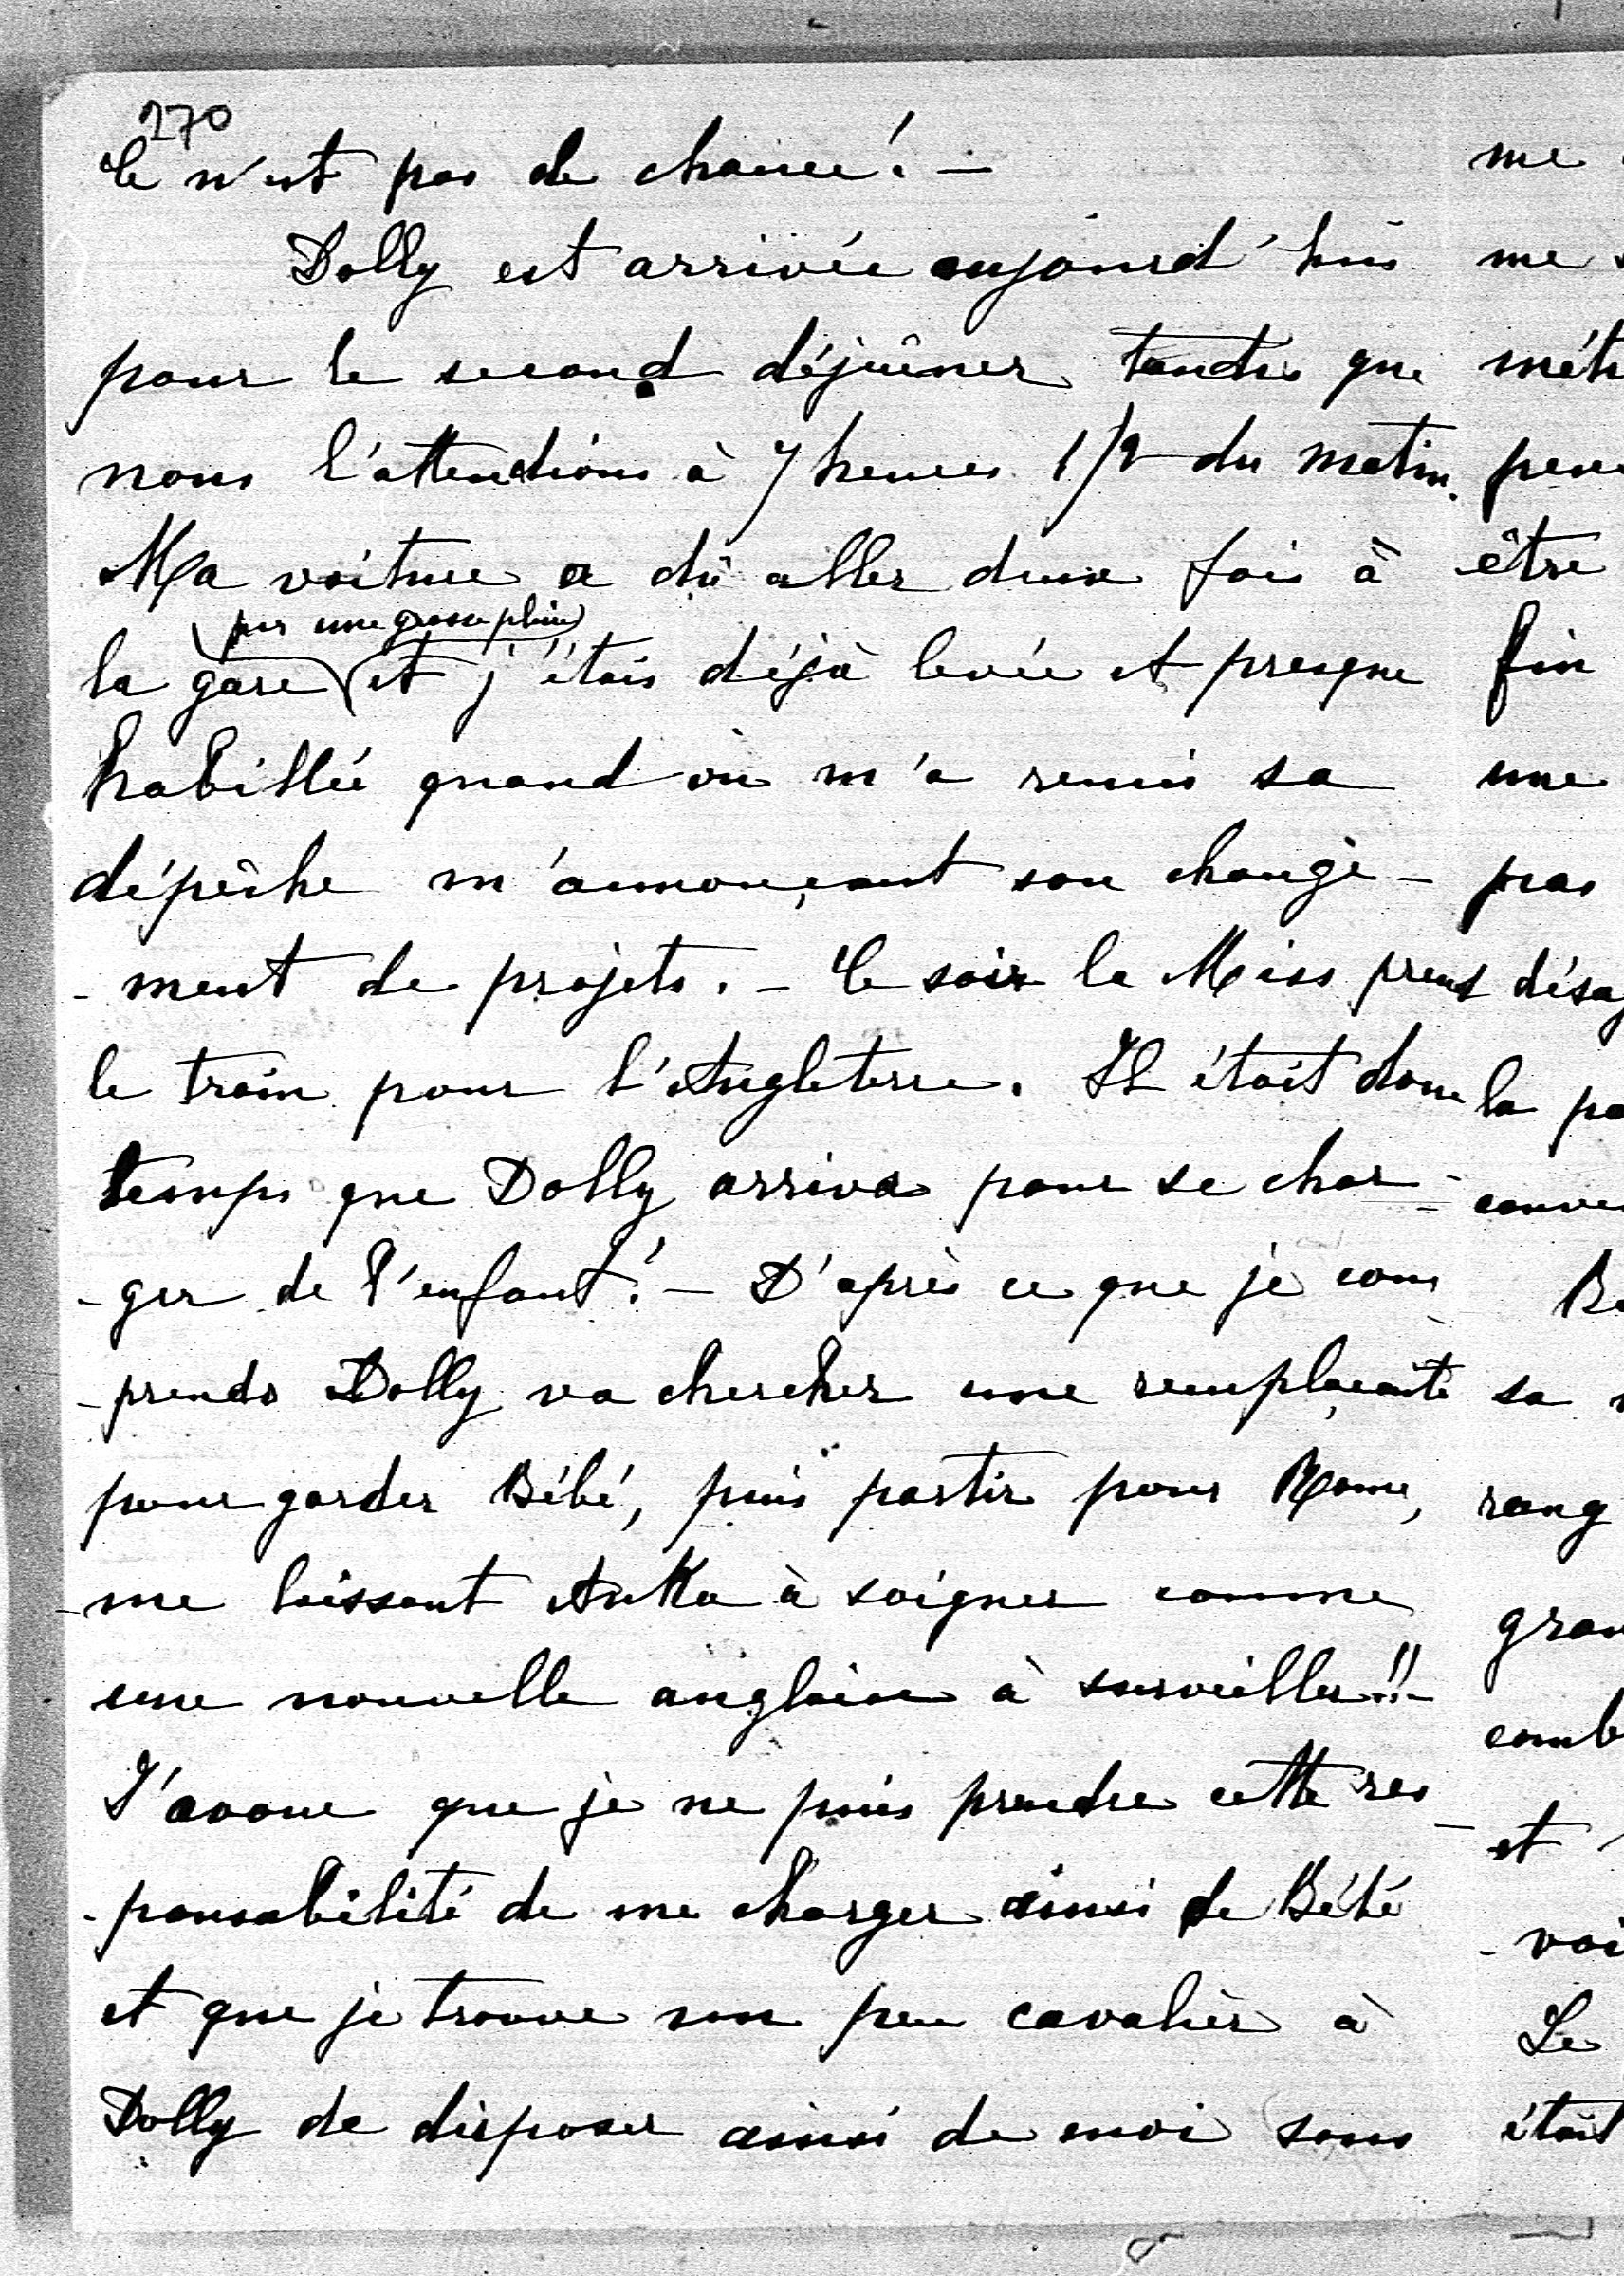 270
Ce n'est pas de chance! —
Dolly est arrivée aujourd'hui
pour le second déjeûner tandis que
nous l'attendions à 7 heures 1/2 du matin.
Ma voiture a dû aller deux fois à
(par une grosse pluie)
la gare et j'étais déjà levée et presque
habillée quand on m'a remis sa
dépêche m'annonçant son change-
-ment de projets. — Ce soir la Miss prend
le train pour l'Angleterre. Il était donc
temps que Dolly arriva pour se char-
-ger de l'enfant! — D'après ce que je com
-prends Dolly va chercher une remplaçante
pour garder Bébé, puis partir pour Rome,
me laissant Anka à soigner comme
une nouvelle anglaise à surveiller!! —
J'avoue que je ne puis prendre cette res-
-ponsabilité de me charger ainsi de Bébé
et que je trouve un peu cavalier à
Dolly de disposer ainsi de moi sans
me
me
être
fin
une
pas
la
sa
rang
et
Le
était